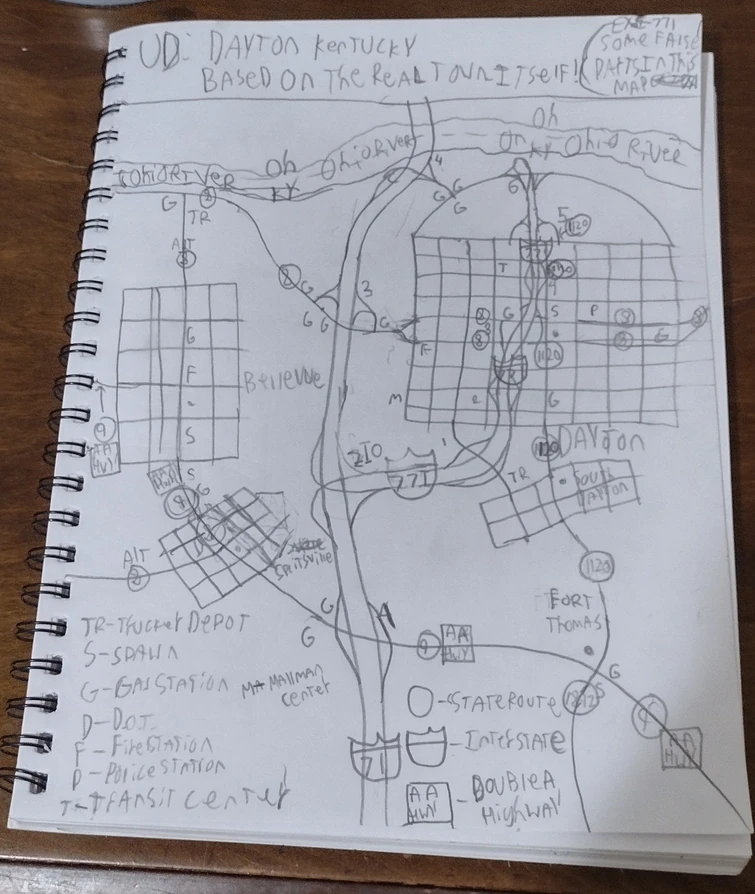 UD: DAYTON KENTUCKY
BASED ON THE REAL TOWN ITSELF!
SOME FALSE
PARTS IN THIS
MAP
Oh
Oh
Ohio RIVER
KY
OhiO RIVER
KY
Ohio RIVER
4
G
G
G
G
TR
2
ALT
2
2
G
G
G
3
G
5
1120
771
T
1120
4
8
8
G
S
P
8
8
8
G
1120
F
M
G
G
F
S
S
Bellevue
9
AA
HWY
AA
HWY
9
G
210
771
1
1120
DAYTON
TR
SOUTH
DAYTON
D
Spltsville
ALT
2
1120
FORT
THOMAS
G
G
A
9
AA
HWY
G
9
AA
HWY
TR-Trucker DEPOT
S-SPAWN
G-GAS STATION
D-D.O.T.
F-Fire STATION
P-POLICE STATION
T-TRANSIT CENTER
M-MAILMAN
CENTER
O-STATE ROUTE
71
-INTERSTATE
AA
HWY
-DOUBLE A
HIGHWAY